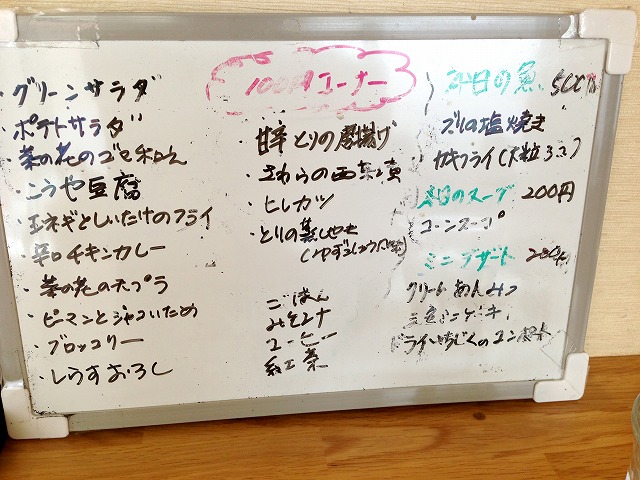 100円コーナー
・グリーンサラダ
・ポテトサラダ
・菜の花のゴマ和え
・こうや豆腐
・玉ネギとしいたけのフライ
・辛口チキンカレー
・菜の花の天プラ
・ピーマンとジャコいため
・ブロッコリー
・しらすおろし
・甘辛とりの唐揚げ
・さわらの西京漬
・ヒレカツ
・とりの蒸し
ごはん
みそ汁
コーヒー
紅茶
本日の魚 500円
ブリの塩焼き
カキフライ(大粒3コ)
本日のスープ 200円
コーンスープ
ミニデザート 200円
クリームあんみつ
ドライいちじくの